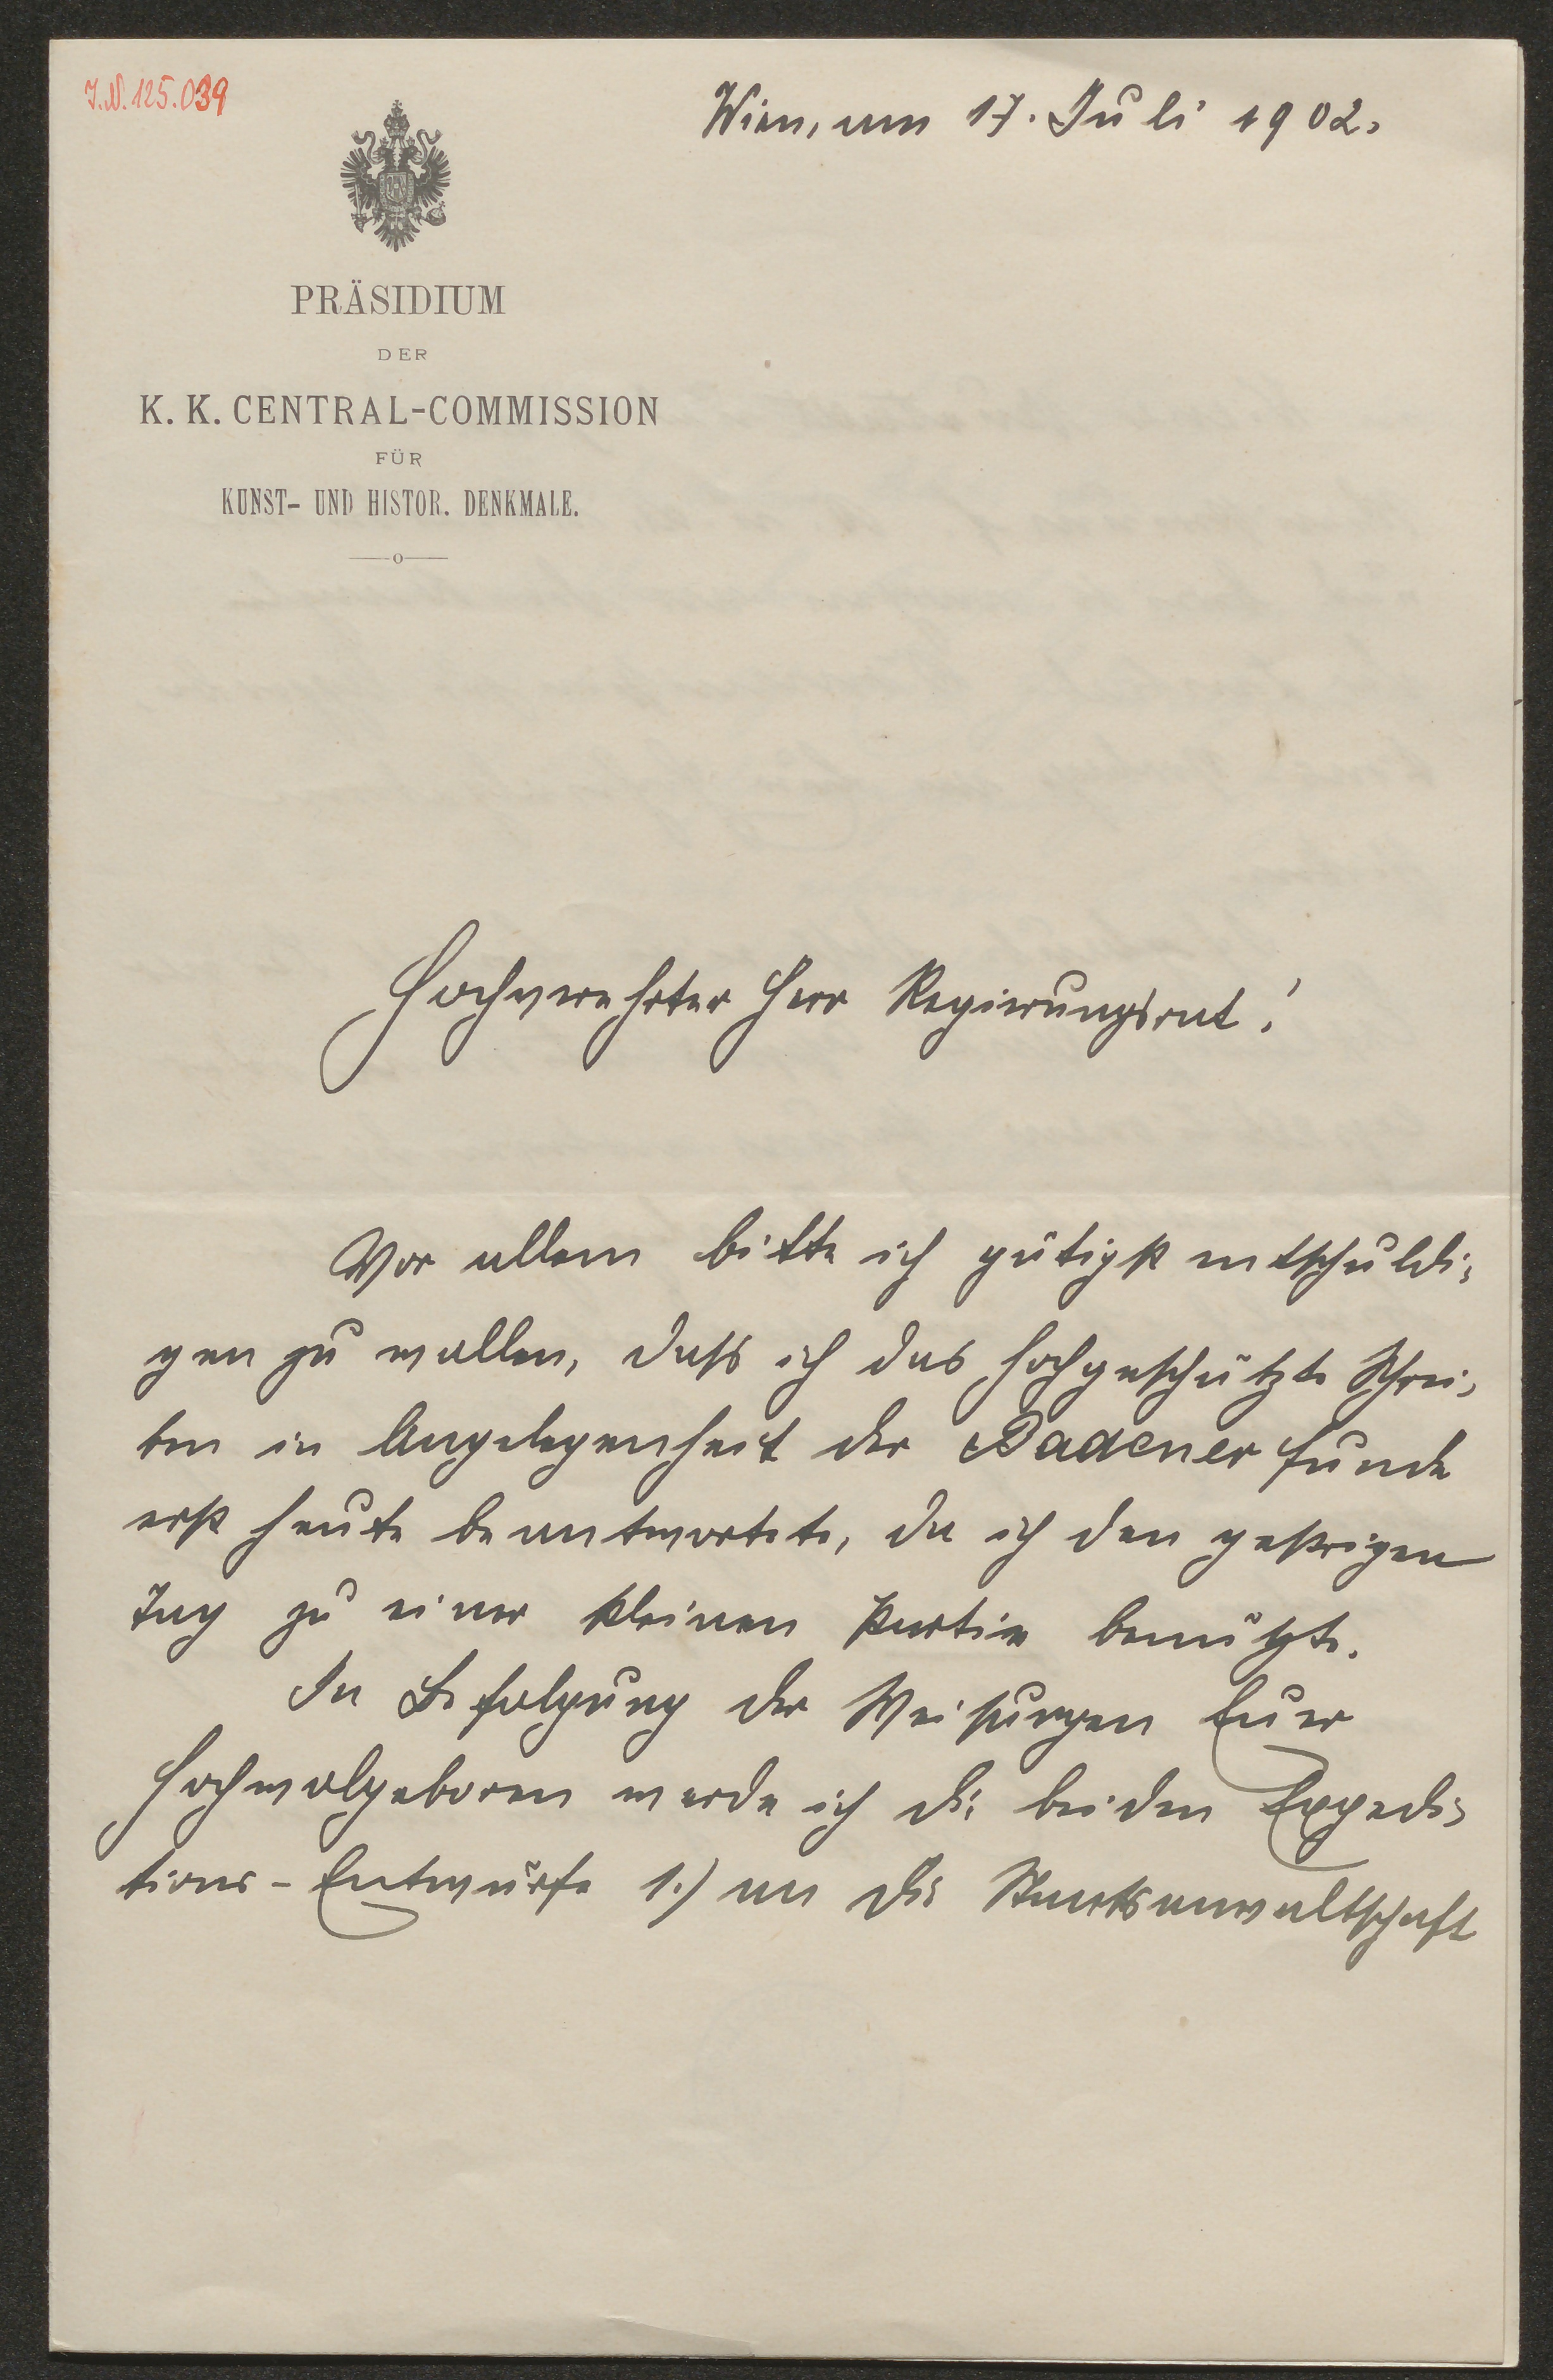 J.N. 125.039
Wien, am 17. Juli 1902.
PRÄSIDIUM
DER
K. K. CENTRAL-COMMISSION
FÜR
KUNST- UND HISTOR. DENKMALE.
Hochverehrter Herr Regierungsrat!
Vor allem bitte ich gütigst entschuldi-
gen zu wollen, dass ich das hochgeschätzte Schrei-
ben in Angelegenheit der Badener Funde
erst heute beantwortete, da ich den gestrigen
Tag zu einer kleinen Partie benützte.
In Befolgung der Weisungen Euer
Hochwolgeboren werde ich die beiden Expedi-
tions-Entwürfe 1.) an die Staatsanwaltschaft